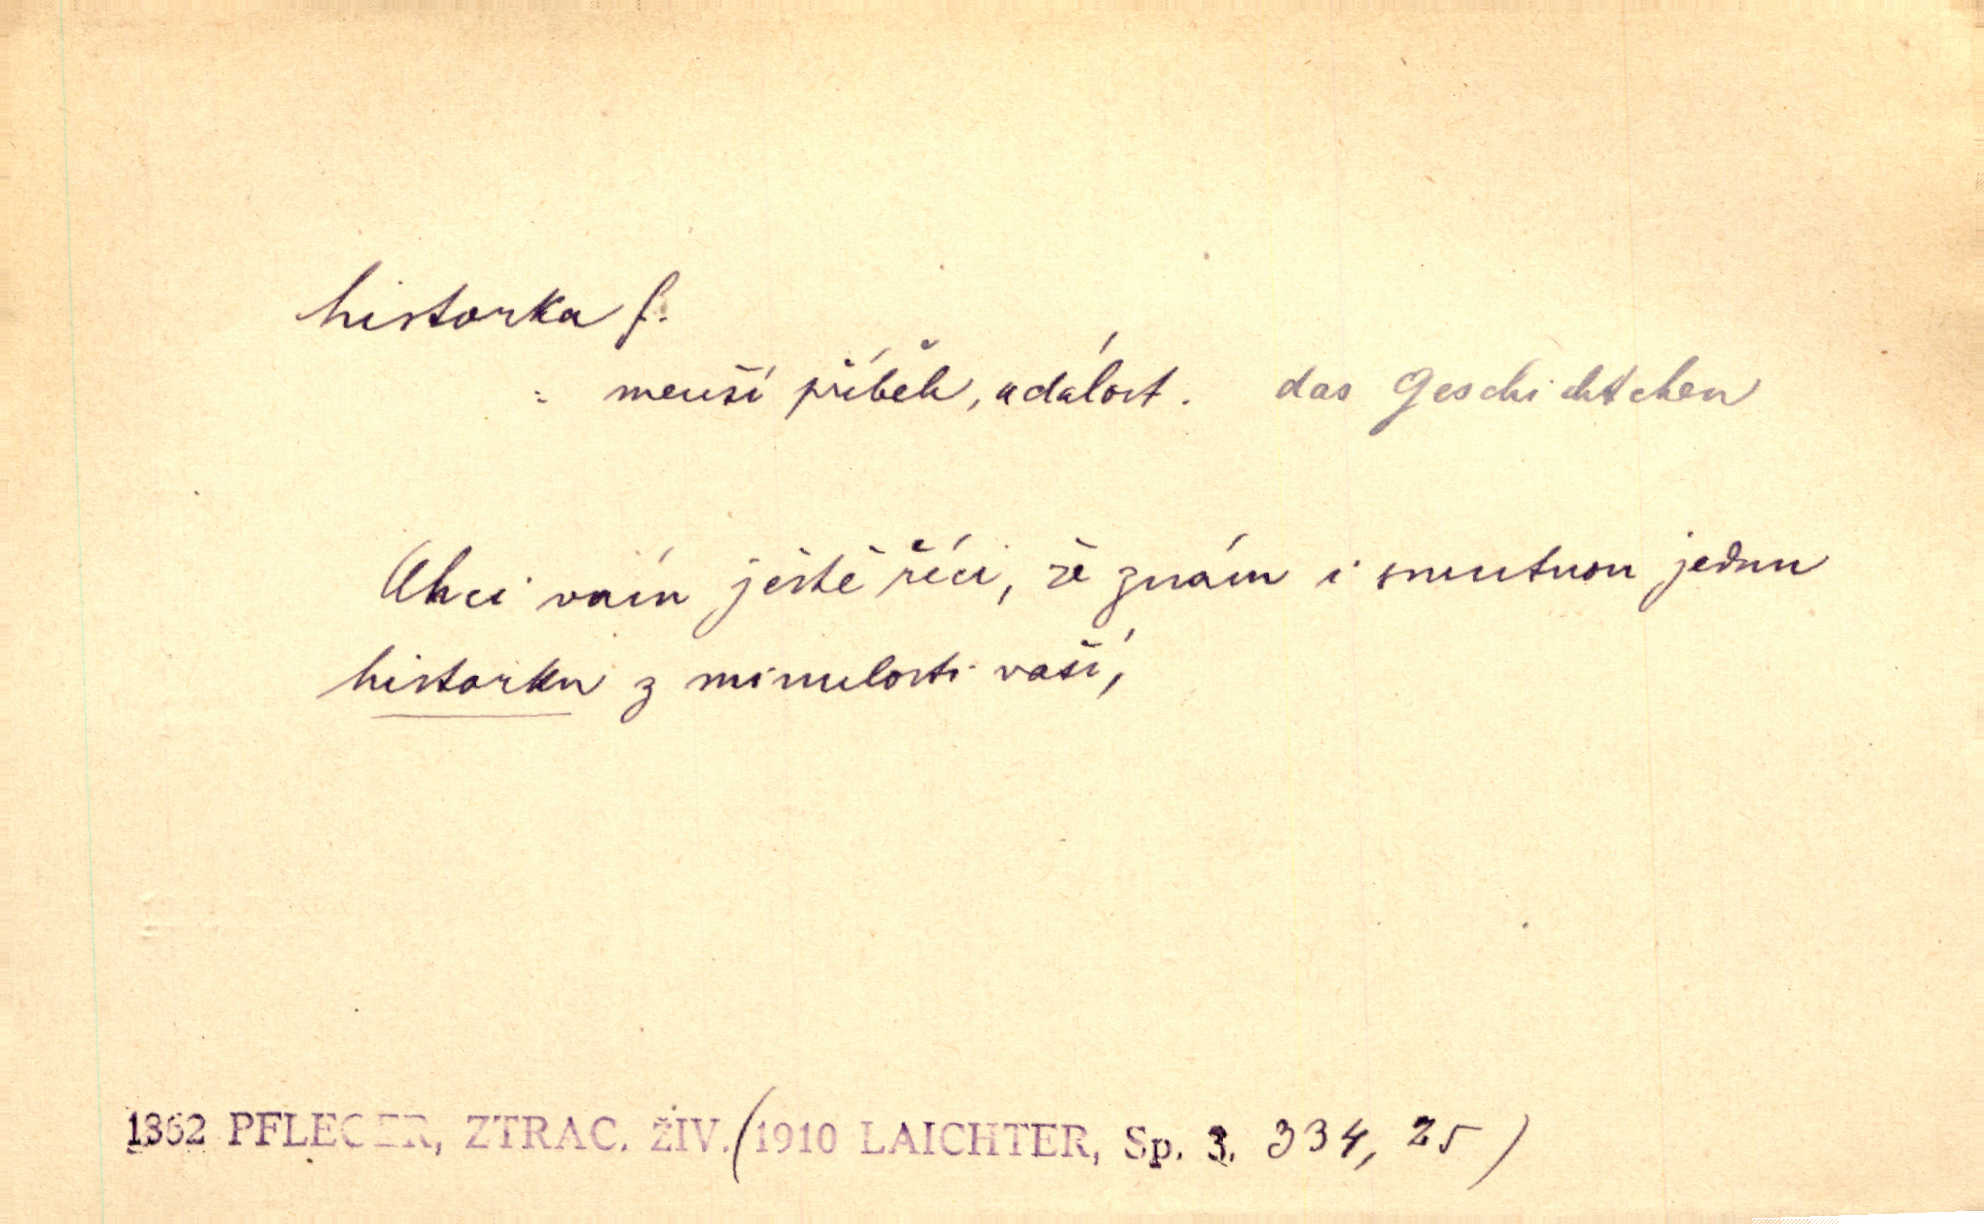 historka f.
= menší příběh, událost. das Geschichtchen
Chci vám ještě říci, že znám i smutnou jednu
historku z minulosti vaší,
1862 PFLEGER, ZTRAC. ŽIV. (1910 LAICHTER, Sp. 3. 334, 25)